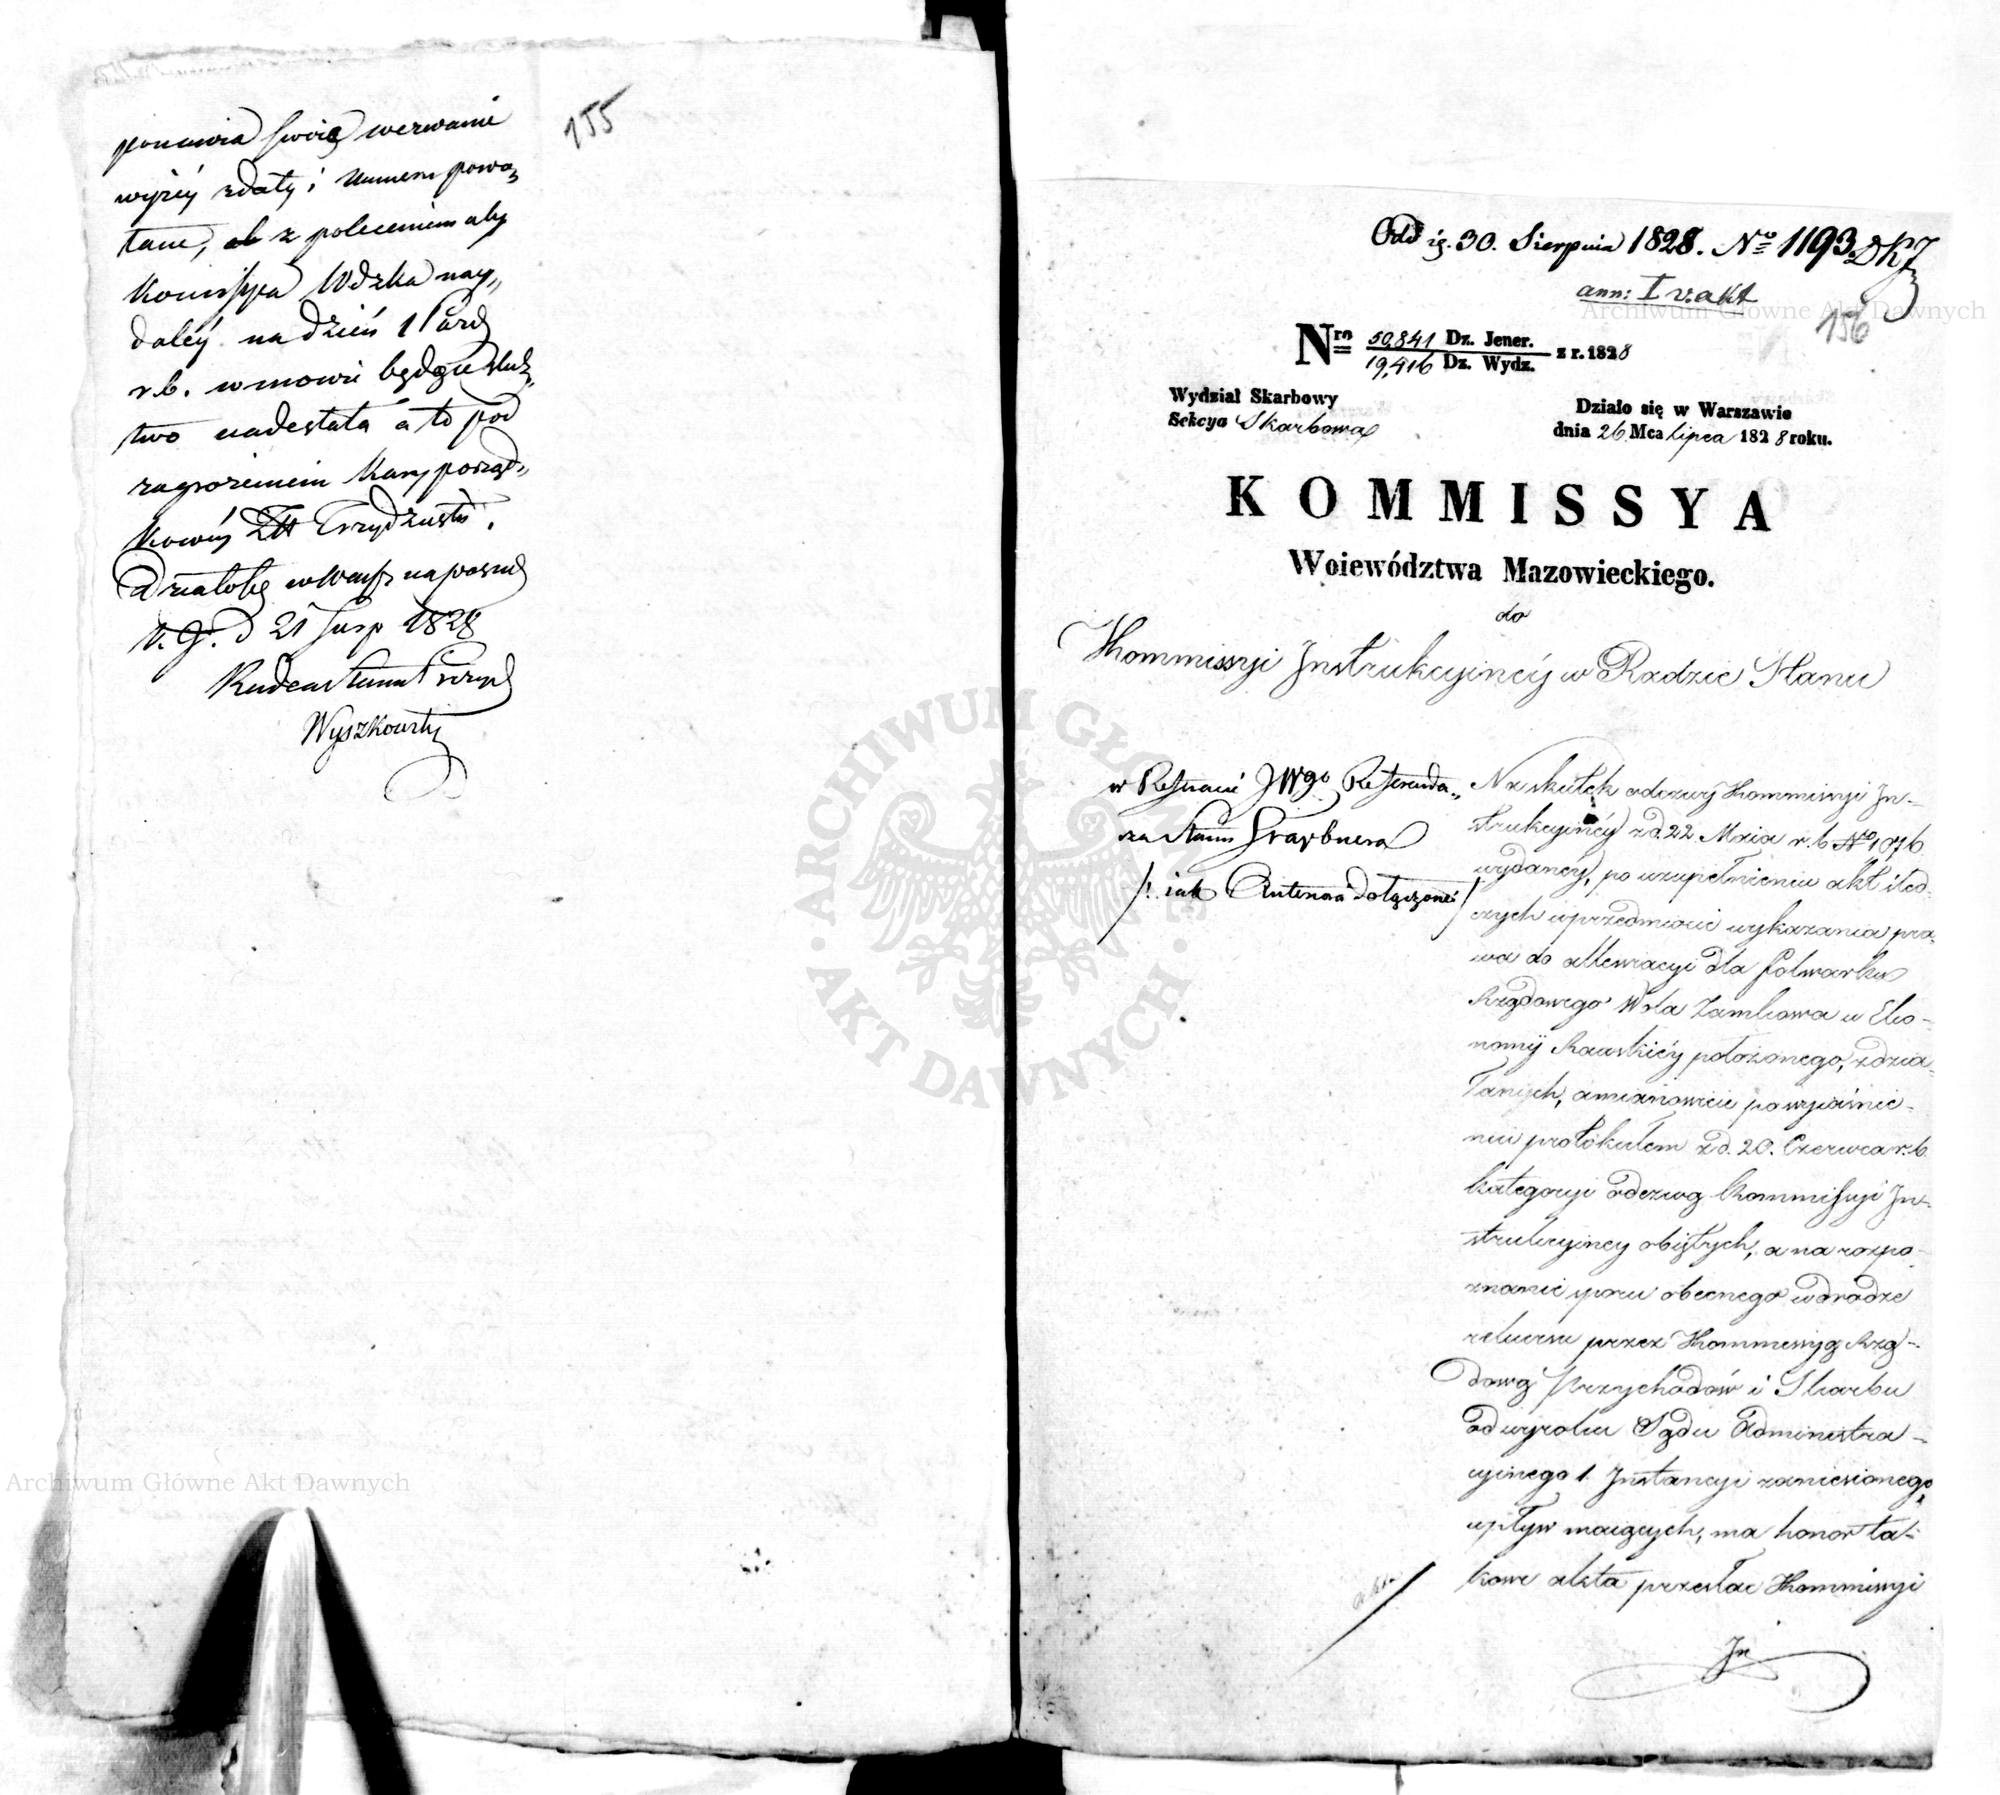 155
ponawia swoie wezwanie
wyżéy z daty i Numeru powo„
łane, z poleceniem aby
Kommissya Wdzka nay„
daléy na dzień 1 Paźd
r. b. w mowie będące
two nadesłała a to pod
zagrożeniem Kary porząd„
kowéy Trzydziestu.
Działo się w Warsz na posiedz
K. J. d 21 Sierp 1828
Wyszkowski
Odd 30. Sierpnia 1828. No 1193. DKJ
ann: I v. akt
156
Nro 50,841 Dz. Jener.
19,416 Dz. Wydz. z r. 1828
Wydział Skarbowy
Sekcya Skarbowa
Działo się w Warszawie
dnia 26 Mca Lipca 1828 roku.
KOMMISSYA
Woiewództwa Mazowieckiego.
do
Kommissyi Instrukcyinéy w Radzie Stanu
w Referacie JWgo Referenda„
rza Stanu
/: iak Antenora dołączone :/
Na skutek odezwy Kommissyi In-
strukcyinéy z d. 22 Maia r. b. No 1076
wydanéy, po uzupełnieniu akt śled-
czych w przedmiocie wykazania pra-
wa do allewiacyi dla folwarku
Rządowego Wola Zamkowa w Eko-
nomÿ Rawskiéy położonego, zdzia-
łanych, a mianowicie po wyiaśnie-
niu protokułem z d. 20. Czerwca r. b.
kategoryi odezwą Kommissyi In-
strukcyiney obiętych, a na rozpo-
znanie sporu obecnego w drodze
rekursu przez Kommissyą Rzą-
dową Przychodów i Skarbu
od wyroku Sądu Administra-
cyinego 1. Instancyi zaniesionego,
wpływ maiących, ma honor ta-
kowe akta przesłać Kommissyi
In
akta
ARCHIWUM GŁÓWNE · AKT DAWNYCH ·
Archiwum Główne Akt Dawnych
Archiwum Główne Akt Dawnych